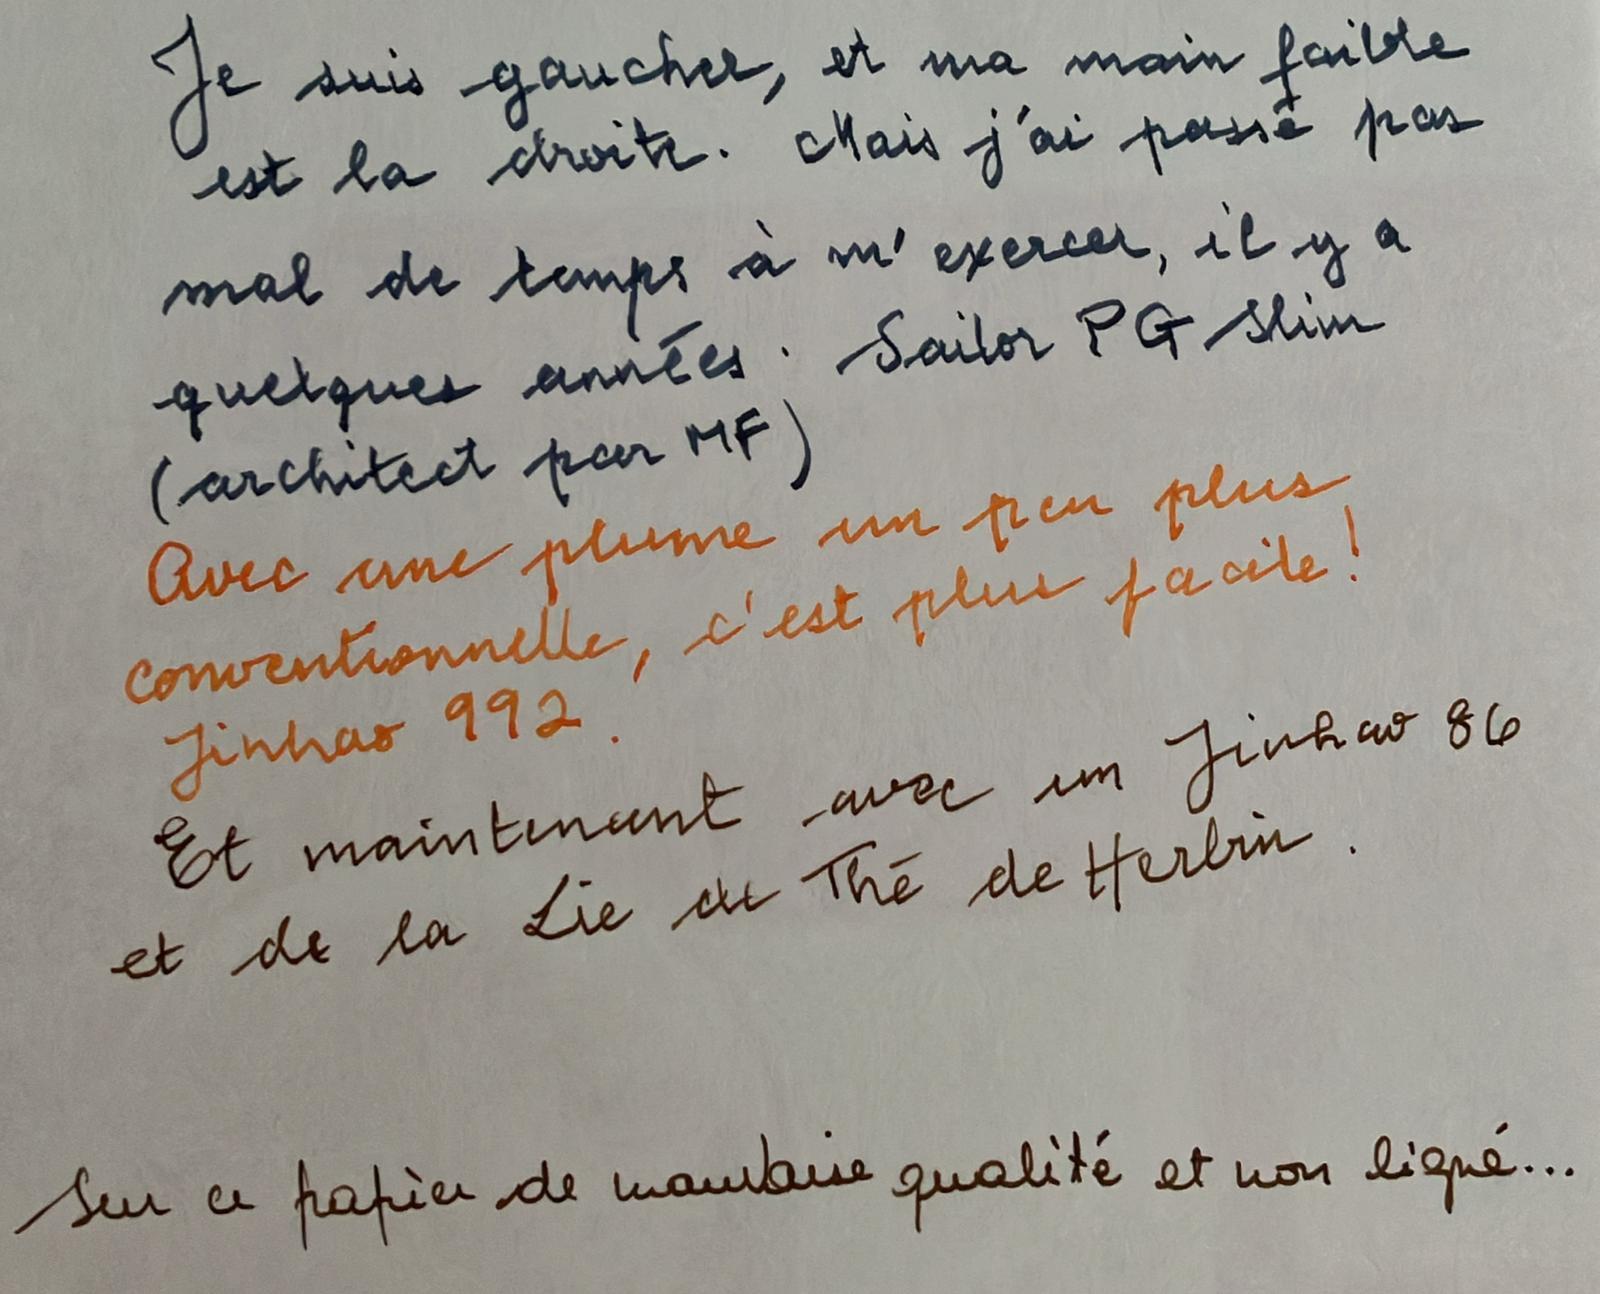 Je suis gaucher, et ma main faible
est la droite. Mais j'ai passé pas
mal de temps à m'exercer, il y a
quelques années. Sailor PG Slim
(architect par MF)
Avec une plume un peu plus
conventionnelle, c'est plus facile!
Jinhao 992.
Et maintenant avec un Jinhao 86
et de la Lie de Thé de Herbin.
Sur ce papier de mauvaise qualité et non ligné...